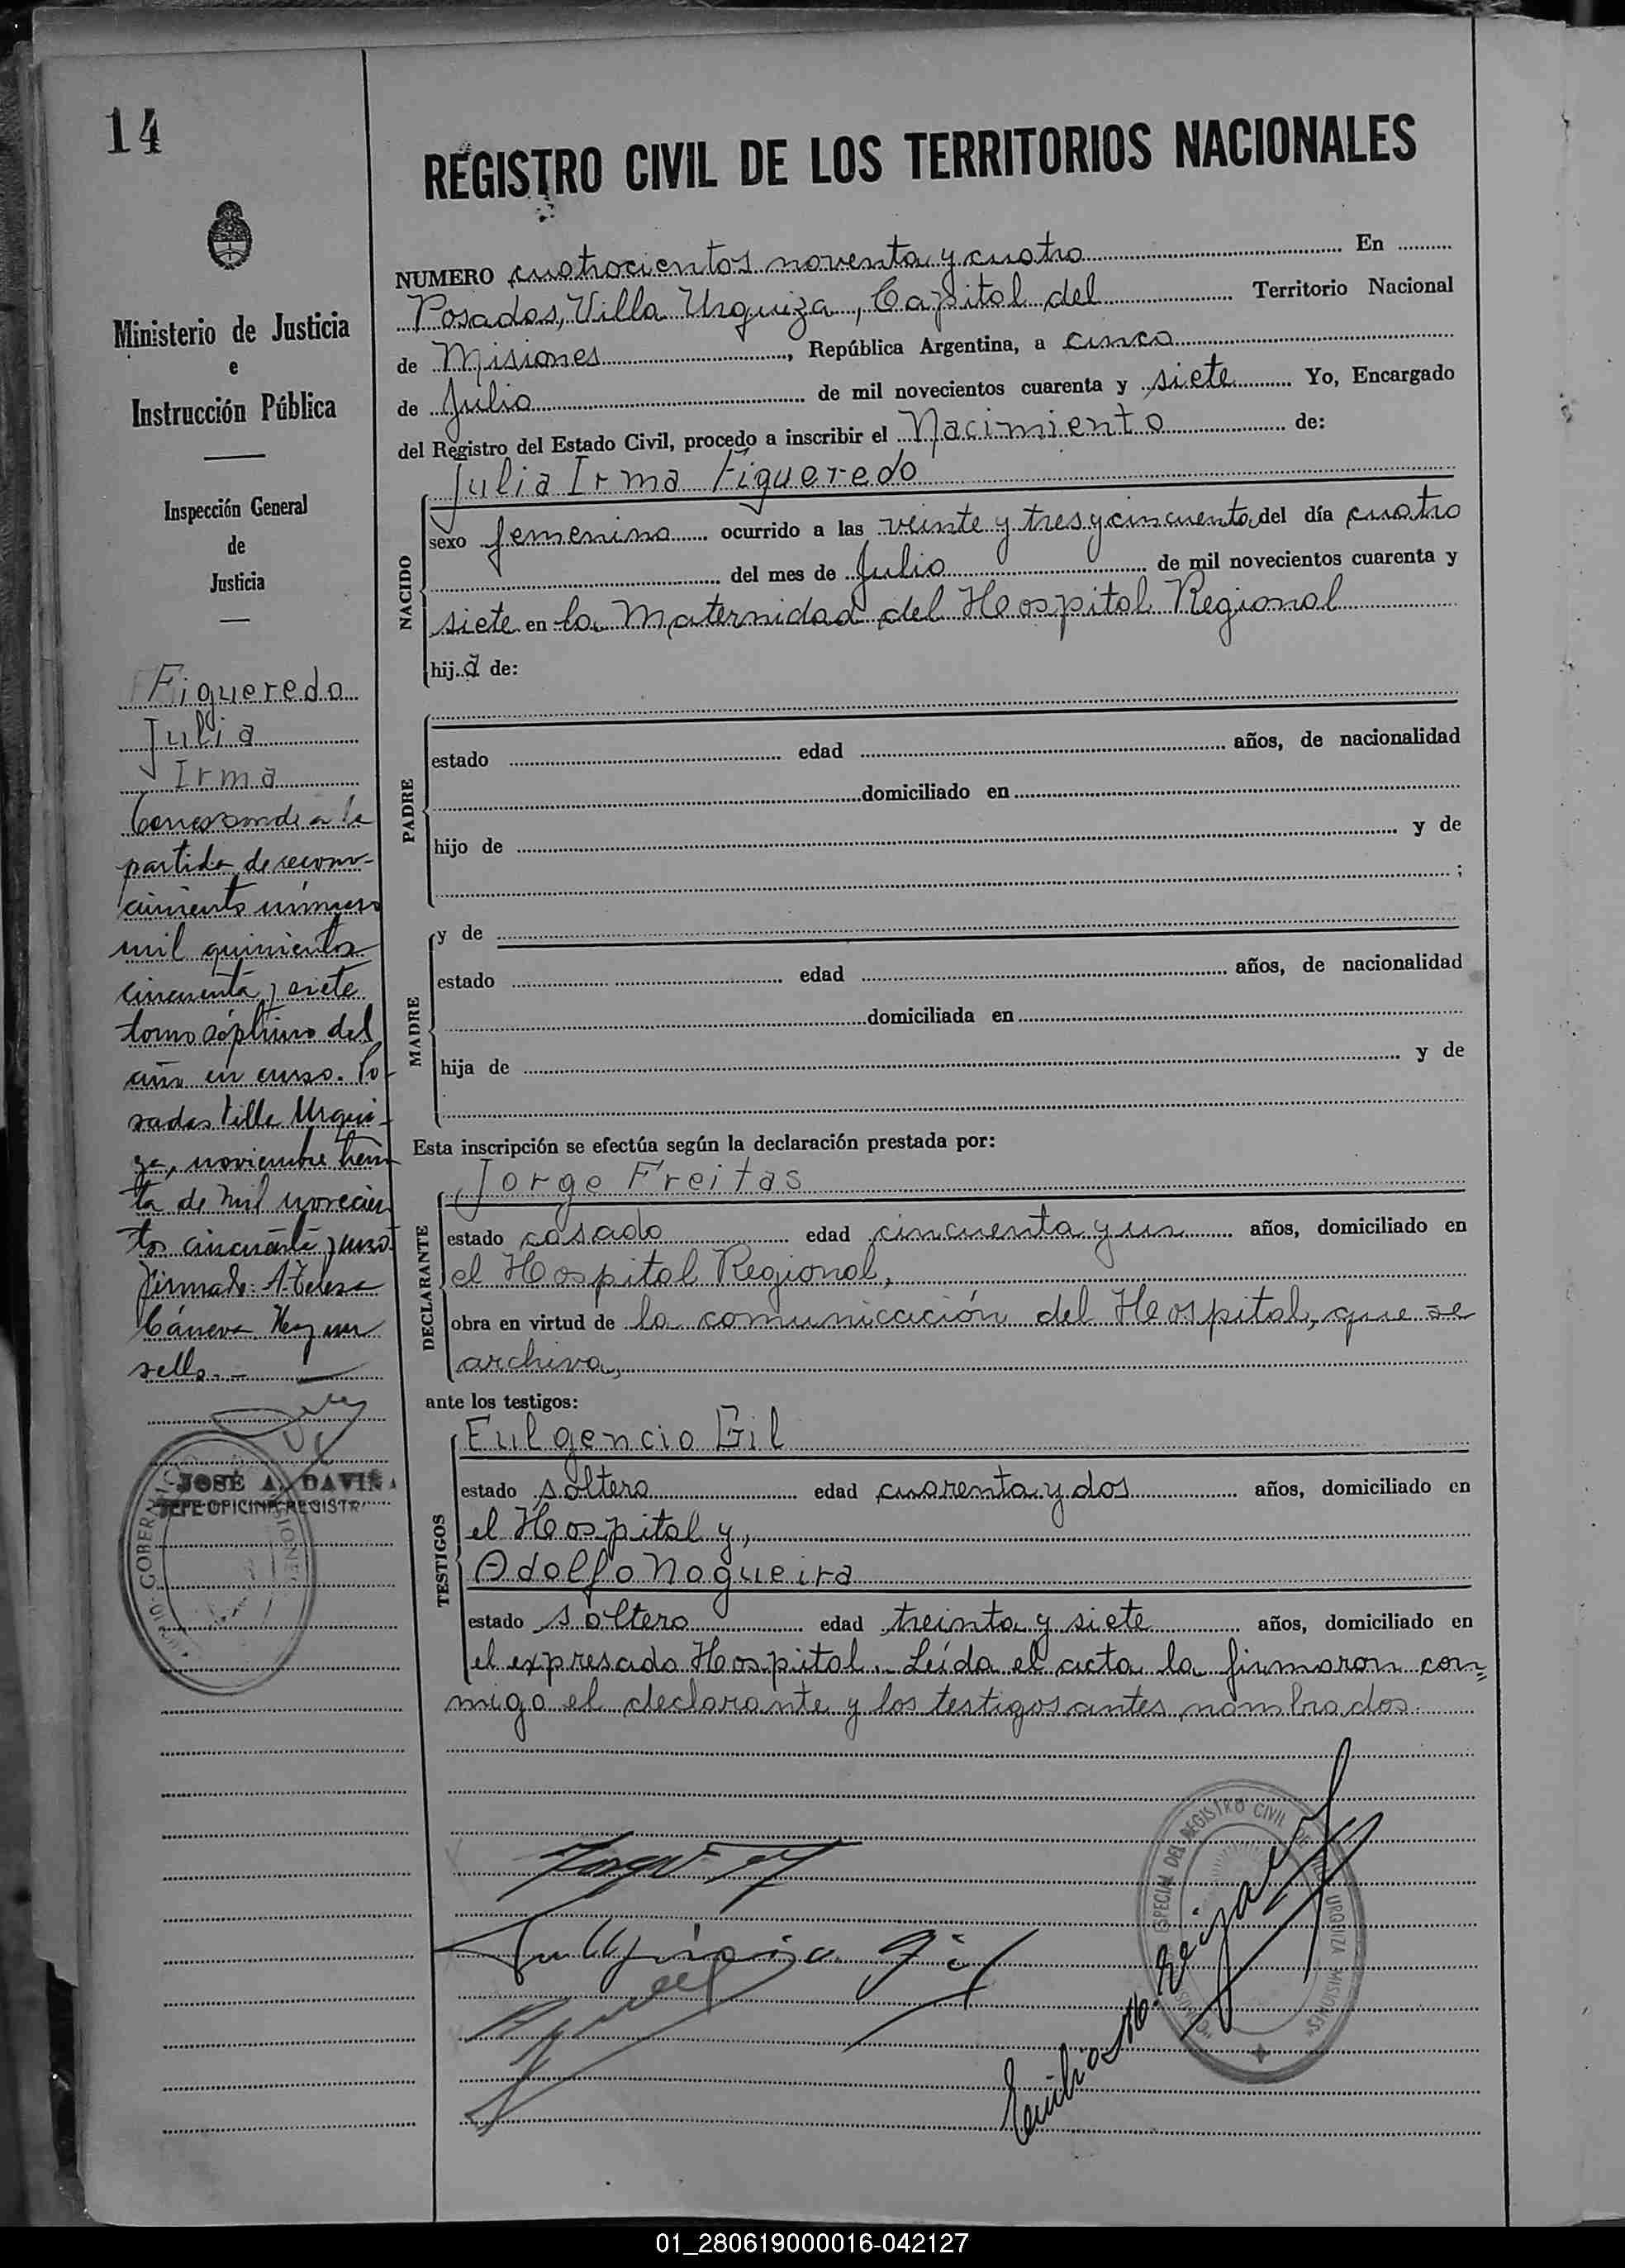 14
REGISTRO CIVIL DE LOS TERRITORIOS NACIONALES
Ministerio de Justicia
e
Instrucción Pública
Inspección General
de
Justicia
Figueredo
Julia
Irma
Corresponde a la
partida de recono-
cimiento número
mil quinientos
cincuenta y siete
tomo séptimo del
año en curso. Po-
sadas Villa Urqui-
za, noviembre trein
ta de mil novecien
tos cincuenta y uno.
Firmado: A. Teresa
Cáneva. Hay un
sello.-
JOSÉ A. DAVIÑA
JEFE OFICINA REGISTR
NUMERO cuatrocientos noventa y cuatro En
Posadas, Villa Urquiza, Capital del Territorio Nacional
de Misiones, República Argentina, a cinco
de Julio de mil novecientos cuarenta y siete Yo, Encargado
del Registro del Estado Civil, procedo a inscribir el Nacimiento de:
Julia Irma Figueredo
NACIDO
sexo femenino ocurrido a las veinte y tres y cincuenta del día cuatro
del mes de Julio de mil novecientos cuarenta y
siete en la Maternidad del Hospital Regional
hija de:
PADRE
estado edad años, de nacionalidad
domiciliado en
hijo de y de
;
MADRE
y de
estado edad años, de nacionalidad
domiciliada en
hija de y de
Esta inscripción se efectúa según la declaración prestada por:
Jorge Freitas
DECLARANTE
estado casado edad cincuenta y un años, domiciliado en
el Hospital Regional,
obra en virtud de la comunicación del Hospital, que se
archiva,
ante los testigos:
Fulgencio Gil
TESTIGOS
estado soltero edad cuarenta y dos años, domiciliado en
el Hospital y,
Adolfo Nogueira
estado soltero edad treinta y siete años, domiciliado en
el expresado Hospital. Leída el acta la firmaron con=
migo el declarante y los testigos antes nombrados.
ESPECIAL DEL REGISTRO CIVIL DE VILLA URQUIZA MISIONES
Fulgencio Gil
01_280619000016-042127